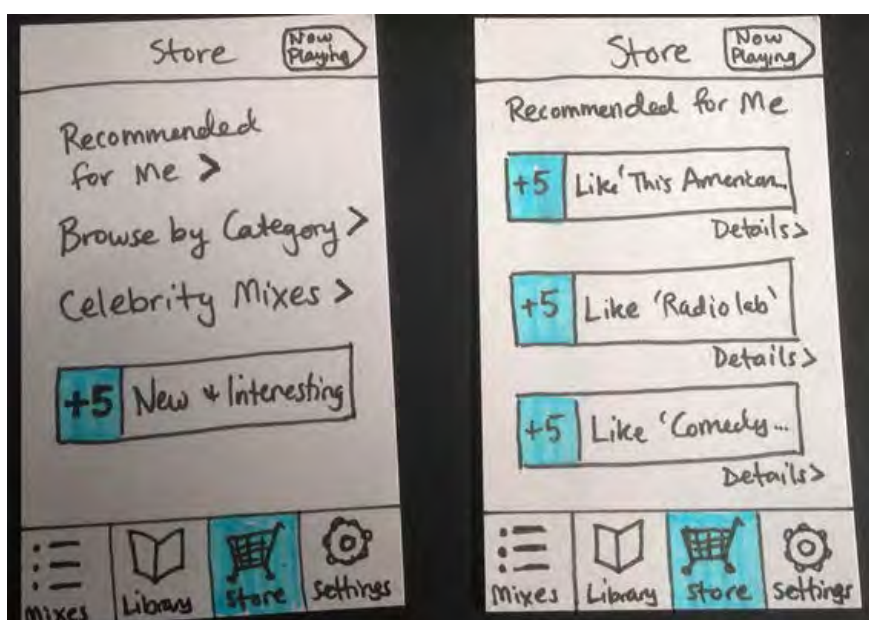 Store
Now
Playing
Recommended
for Me >
Browse by Category >
Celebrity Mixes >
+5 New + Interesting
Mixes Library Store Settings
Store
Now
Playing
Recommended for Me
+5 Like 'This American...
Details >
+5 Like 'Radiolab'
Details >
+5 Like 'Comedy...
Details >
Mixes Library Store Settings